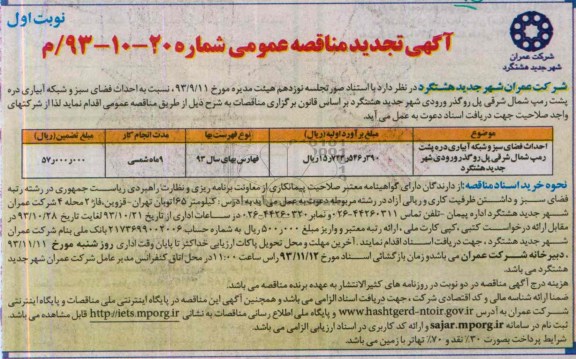 نوبت اول
شرکت عمران
شهر جدید هشتگرد
آگهی تجدید مناقصه عمومی شماره ۲۰-۱۰-۹۳/م
شرکت عمران شهر جدید هشتگرد در نظر دارد با استناد صورتجلسه نوزدهم هیئت مدیره مورخ ۹۳/۹/۱۱، نسبت به احداث فضای سبز و شبکه آبیاری دره
پشت رمپ شمال شرقی پل روگذر ورودی شهر جدید هشتگرد بر اساس قانون برگزاری مناقصات به شرح ذیل از طریق مناقصه عمومی اقدام نماید لذا از شرکتهای
واجد صلاحیت جهت دریافت اسناد دعوت به عمل می آید.
موضوع مبلغ برآورد اولیه (ریال) نوع فهرست بها مدت انجام کار مبلغ تضمین (ریال)
احداث فضای سبز و شبکه آبیاری دره پشت
رمپ شمال شرقی پل روگذر ورودی شهر
جدید هشتگرد
فهارس بهای سال ۹۳ ۹ ماه شمسی
نحوه خرید اسناد مناقصه: از دارندگان دارای گواهینامه معتبر صلاحیت پیمانکاری از معاونت برنامه ریزی و نظارت راهبردی ریاست جمهوری در رشته رتبه
فضای سبز و داشتن ظرفیت کاری و ریالی آزاد در رشته مربوطه دعوت به عمل می آید به آدرس: کیلومتر ۶۵ اتوبان تهران- قزوین، فاز ۲ محله ۴ شرکت عمران
شهر جدید هشتگرد اداره پیمان -تلفن تماس ۴۴۲۶۰۳۱۱-۰۲۶ و نمابر ۴۴۲۶۰۳۲۰-۰۲۶ در ساعات اداری از تاریخ ۹۳/۱۰/۲۱ لغایت تاریخ ۹۳/۱۰/۲۸ در
مقابل ارائه درخواست کتبی، کپی کارت ملی، ارائه رتبه معتبر و واریز مبلغ ۵۰۰٫۰۰۰ ریال به شماره حساب ۲۱۷۳۶۹۹۰۰۲۰۰۶ بانک ملی بنام شرکت عمران
شهر جدید هشتگرد، جهت دریافت اسناد اقدام نمایند. آخرین مهلت و محل تحویل پاکات ارزیابی حداکثر تا پایان وقت اداری روز شنبه مورخ ۹۳/۱۱/۱۱
، دبیرخانه شرکت عمران می باشد و زمان بازگشائی اسناد مورخ ۹۳/۱۱/۱۲ راس ساعت ۱۱:۰۰ در محل اتاق کنفرانس مدیر عامل شرکت عمران شهر جدید
هشتگرد می باشد.
هزینه درج آگهی مناقصه در دو نوبت در روزنامه های کثیرالانتشار به عهده برنده مناقصه می باشد.
ضمنا ارائه شناسه ملی و کد اقتصادی شرکت، جهت دریافت اسناد الزامی می باشد و همچنین آگهی این مناقصه در پایگاه اینترنتی ملی مناقصات و پایگاه اینترنتی
شرکت عمران به آدرس www.hashtgerd-ntoir.gov.ir و پایگاه ملی اطلاع رسانی مناقصات به نشانی http://iets.mporg.ir قابل مشاهده می باشد.
ثبت نام در سامانه sajar.mporg.ir و ارائه کد کاربری در اسناد ارزیابی الزامی می باشد.
شرایط پرداخت بصورت ۳۰٪ نقد و ۷۰٪ تهاتر با زمین می باشد.